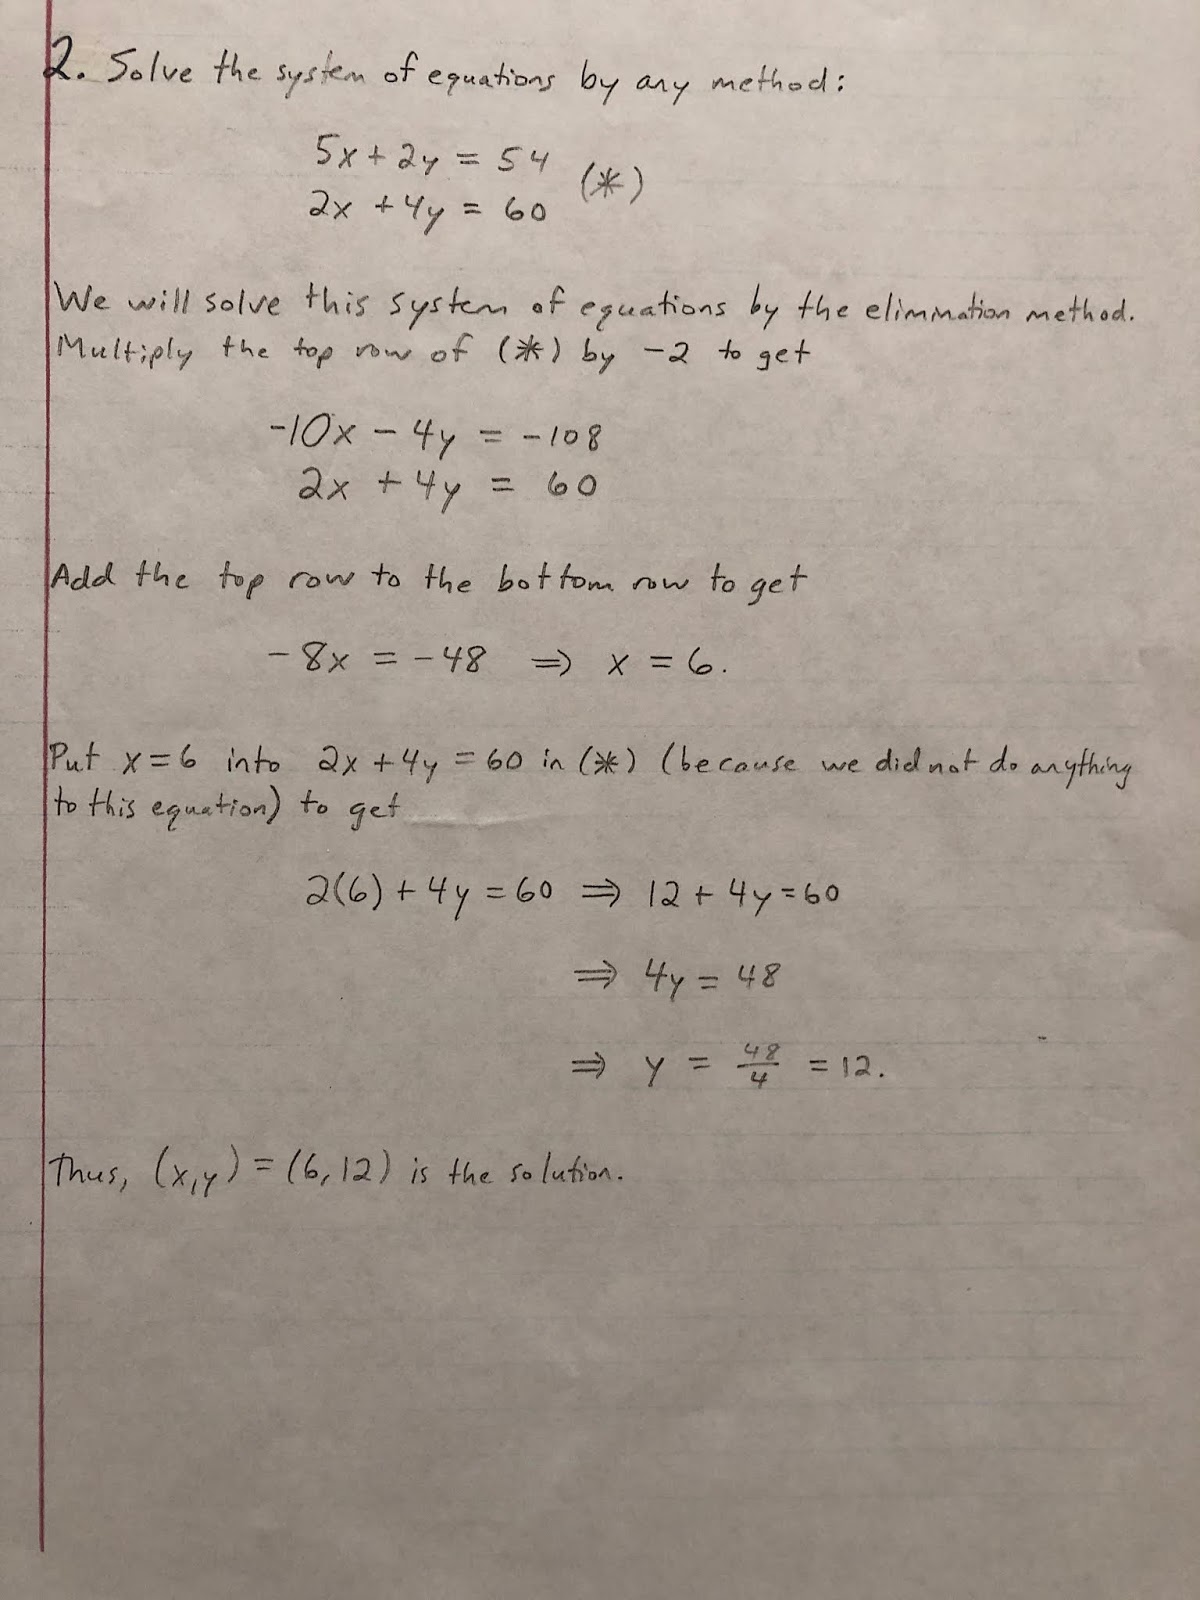 2. Solve the system of equations by any method:
5x + 2y = 54
(*)
2x + 4y = 60
We will solve this system of equations by the elimination method.
Multiply the top row of (*) by -2 to get
-10x - 4y = -108
2x + 4y = 60
Add the top row to the bottom row to get
-8x = -48 ⇒ x = 6.
Put x = 6 into 2x + 4y = 60 in (*) (because we did not do anything
to this equation) to get
2(6) + 4y = 60 ⇒ 12 + 4y = 60
⇒ 4y = 48
⇒ y = 48/4 = 12.
Thus, (x,y) = (6,12) is the solution.